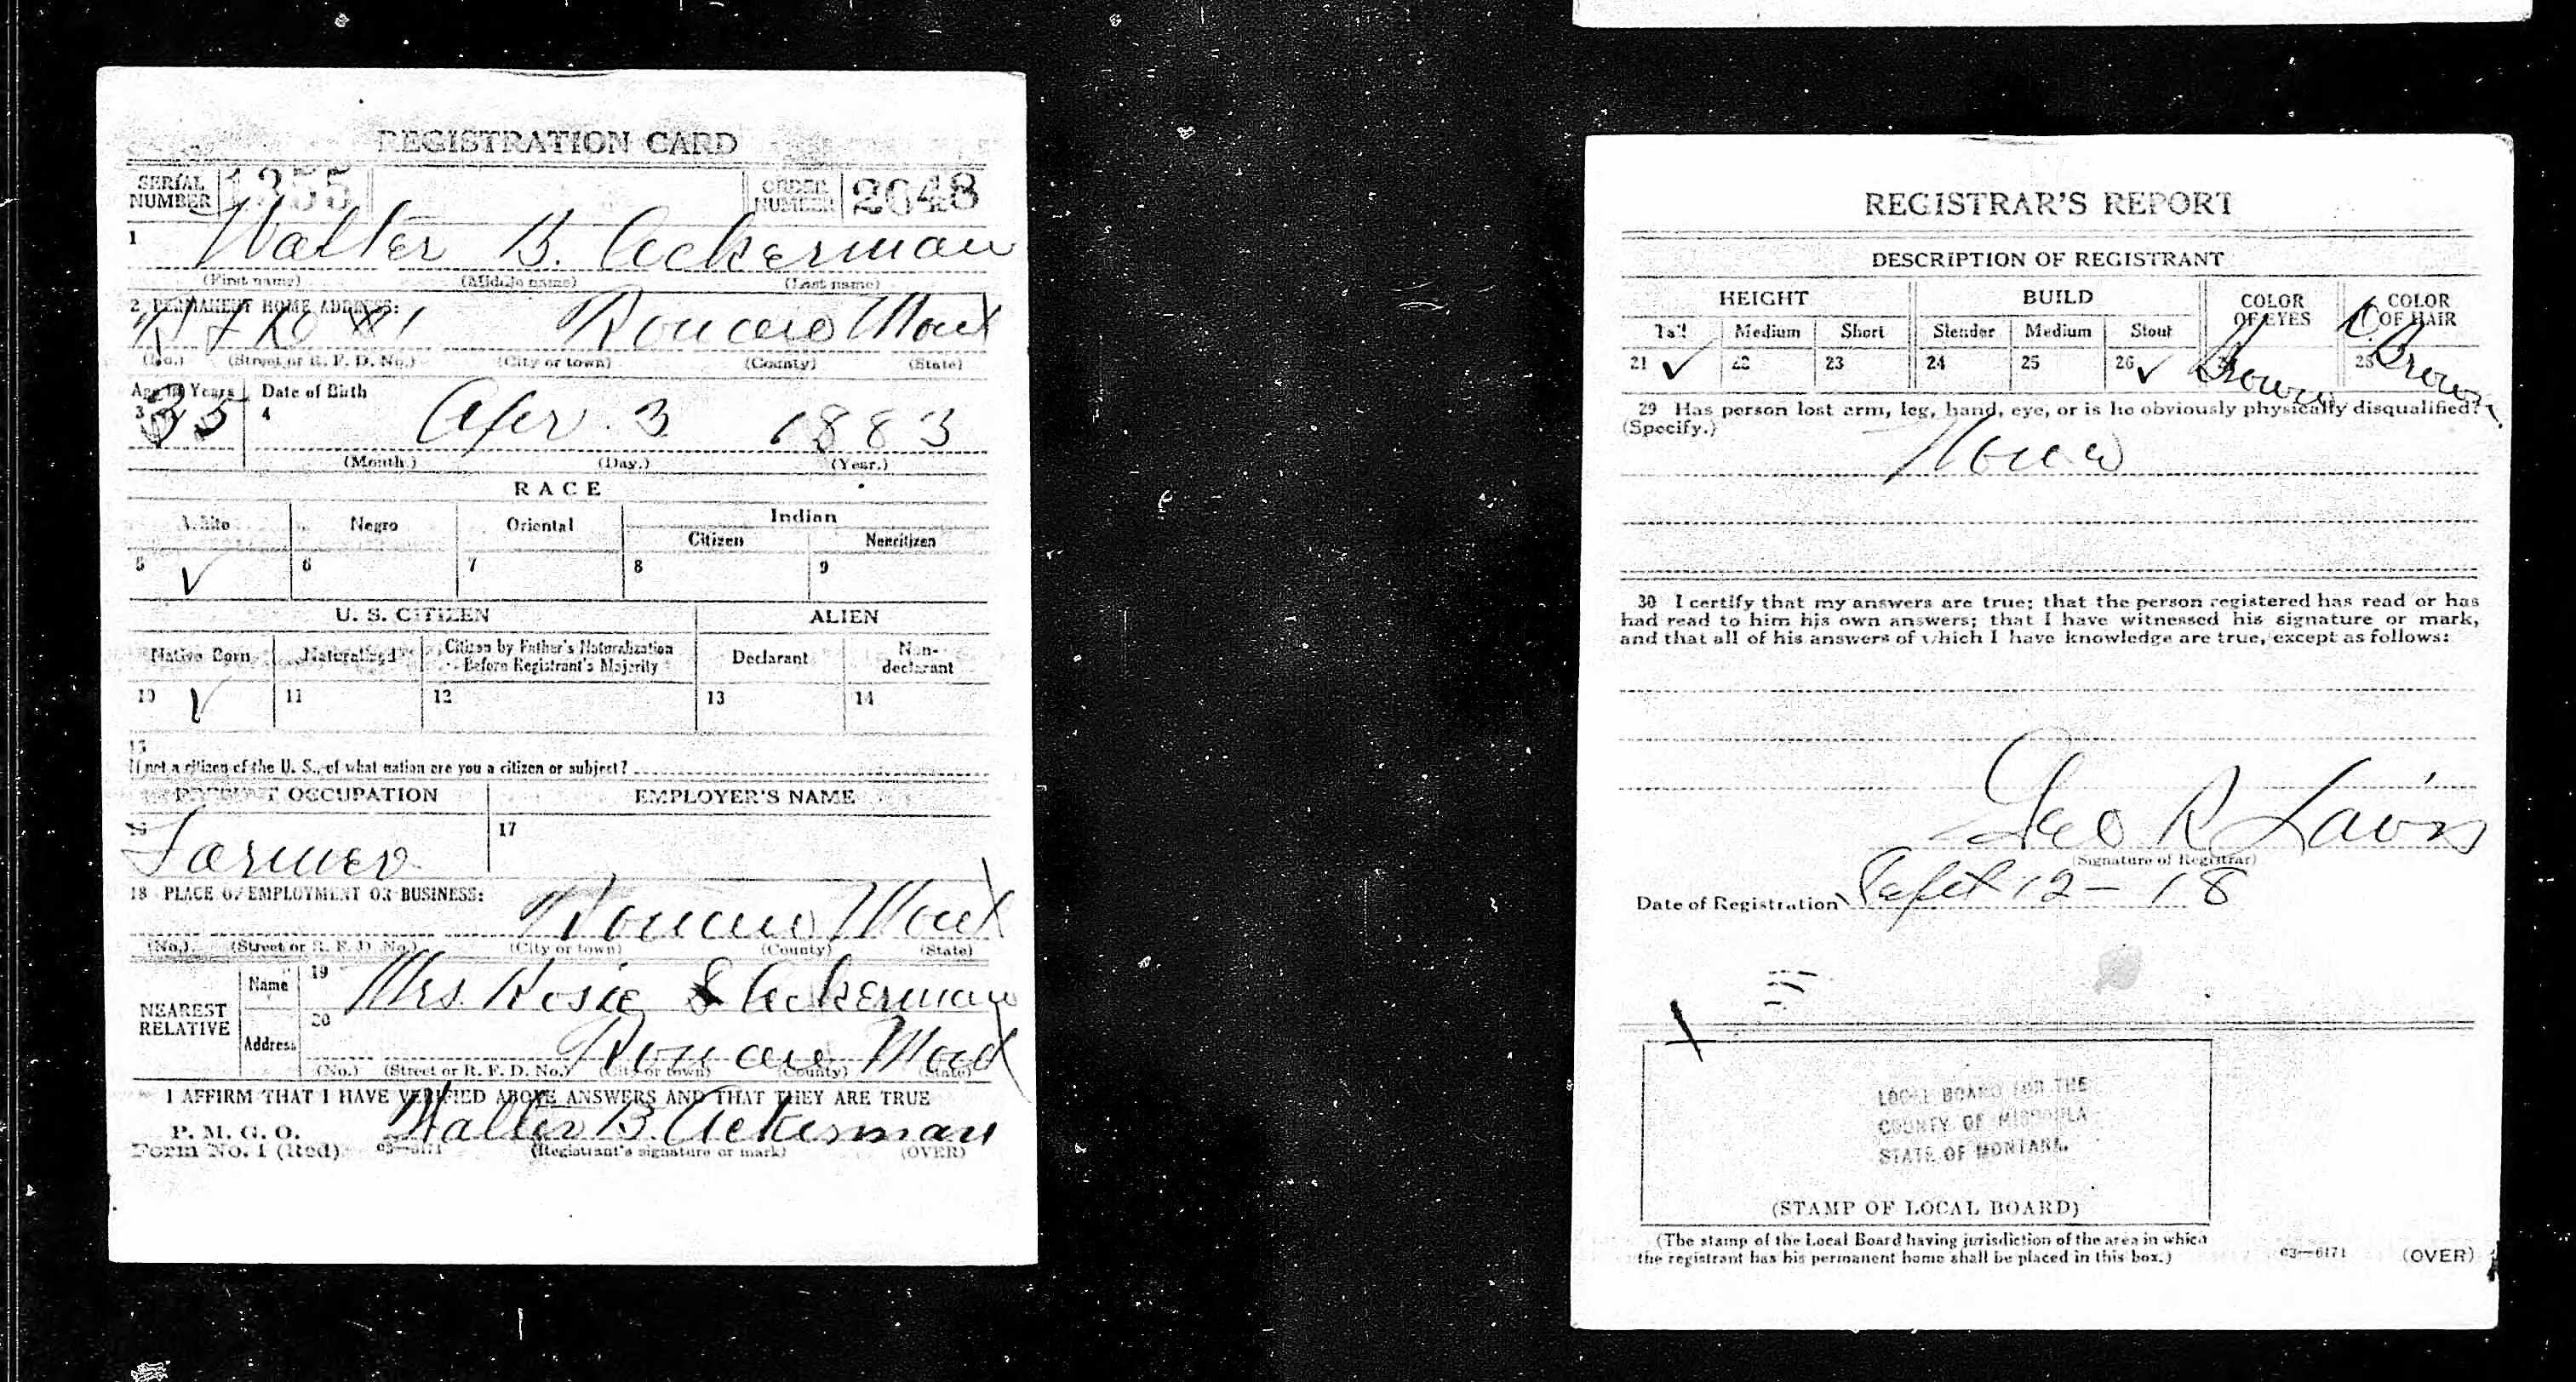 REGISTRATION CARD
SERIAL NUMBER 1355 ORDER NUMBER 2648
1 Walter B. Ackerman
(First name) (Middle name) (Last name)
2 PERMANENT HOME ADDRESS:
R F D #1 Ronan Mont
(No.) (Street or R. F. D. No.) (City or town) (County) (State)
Age in Years Date of Birth
3 35 4 Apr. 3 1883
(Month.) (Day.) (Year.)
RACE
White Negro Oriental Indian
Citizen Noncitizen
5 ✓ 6 7 8 9
U. S. CITIZEN ALIEN
Native Born Naturalized Citizen by Father's Naturalization Before Registrant's Majority Declarant Non-declarant
10 ✓ 11 12 13 14
15
If not a citizen of the U. S., of what nation are you a citizen or subject?
PRESENT OCCUPATION EMPLOYER'S NAME
16 Farmer 17
18 PLACE OF EMPLOYMENT OR BUSINESS:
Ronan Mont
(No.) (Street or R. F. D. No.) (City or town) (County) (State)
NEAREST RELATIVE Name 19 Mrs. Rosie S Ackerman
Address 20 Ronan Mont
(No.) (Street or R. F. D. No.) (City or town) (County) (State)
I AFFIRM THAT I HAVE VERIFIED ABOVE ANSWERS AND THAT THEY ARE TRUE
P. M. G. O.
Form No. 1 (Red) 03—6171 Walter B. Ackerman
(Registrant's signature or mark) (OVER)
REGISTRAR'S REPORT
DESCRIPTION OF REGISTRANT
HEIGHT BUILD COLOR OF EYES COLOR OF HAIR
Tall Medium Short Slender Medium Stout
21 ✓ 22 23 24 25 26 ✓ 27 Brown 28 D. Brown
29 Has person lost arm, leg, hand, eye, or is he obviously physically disqualified?
(Specify.)
None
30 I certify that my answers are true; that the person registered has read or has
had read to him his own answers; that I have witnessed his signature or mark,
and that all of his answers of which I have knowledge are true, except as follows:
Geo R
(Signature of Registrar)
Date of Registration Sept 12 - 18
LOCAL BOARD FOR THE
COUNTY OF MISSOULA
STATE OF MONTANA.
(STAMP OF LOCAL BOARD)
(The stamp of the Local Board having jurisdiction of the area in which
the registrant has his permanent home shall be placed in this box.)
03—6171 (OVER)